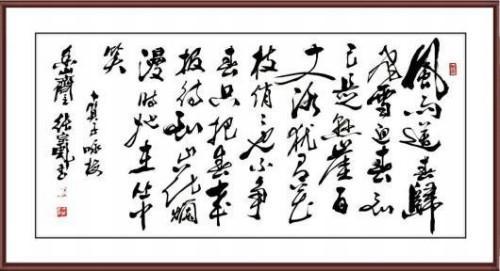 風雨送春歸
飛雪迎春到
已是懸崖百
丈冰猶有花
枝俏々也不争
春只把春来
报待到山花爛
漫時她在丛中
笑
卜算子咏梅